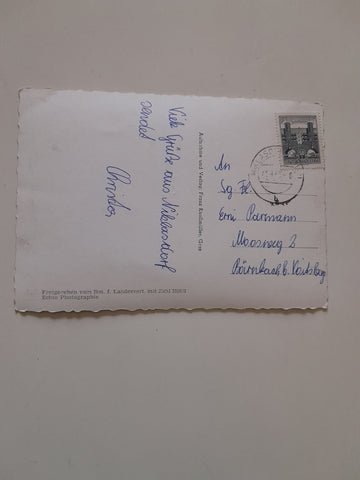 Viele Grüße aus Niklasdorf
sendet
Christa
Freigegeben vom Bm. f. Landesvert. mit Zahl
Echte Photographie
Aufnahme und Verlag: Franz Knollmüller, Graz
An
Sg. Frl.
Erni Parmann
Moosweg 2
Bärnbach b. Voitsberg